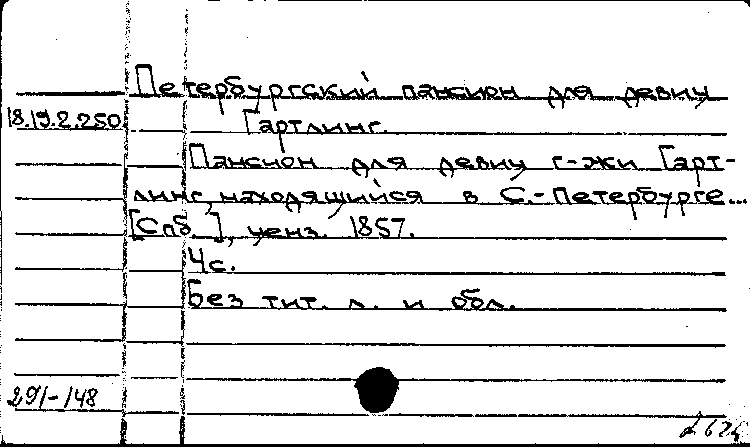 Петербургский пансион для девиц
18.19.2.250
Гартлинг.
Пансион для девиц г-жи Гарт-
линг, находящийся в С.-Петербурге...
[Спб.], ценз. 1857.
4с.
Без тит. л. и обл.
291-148